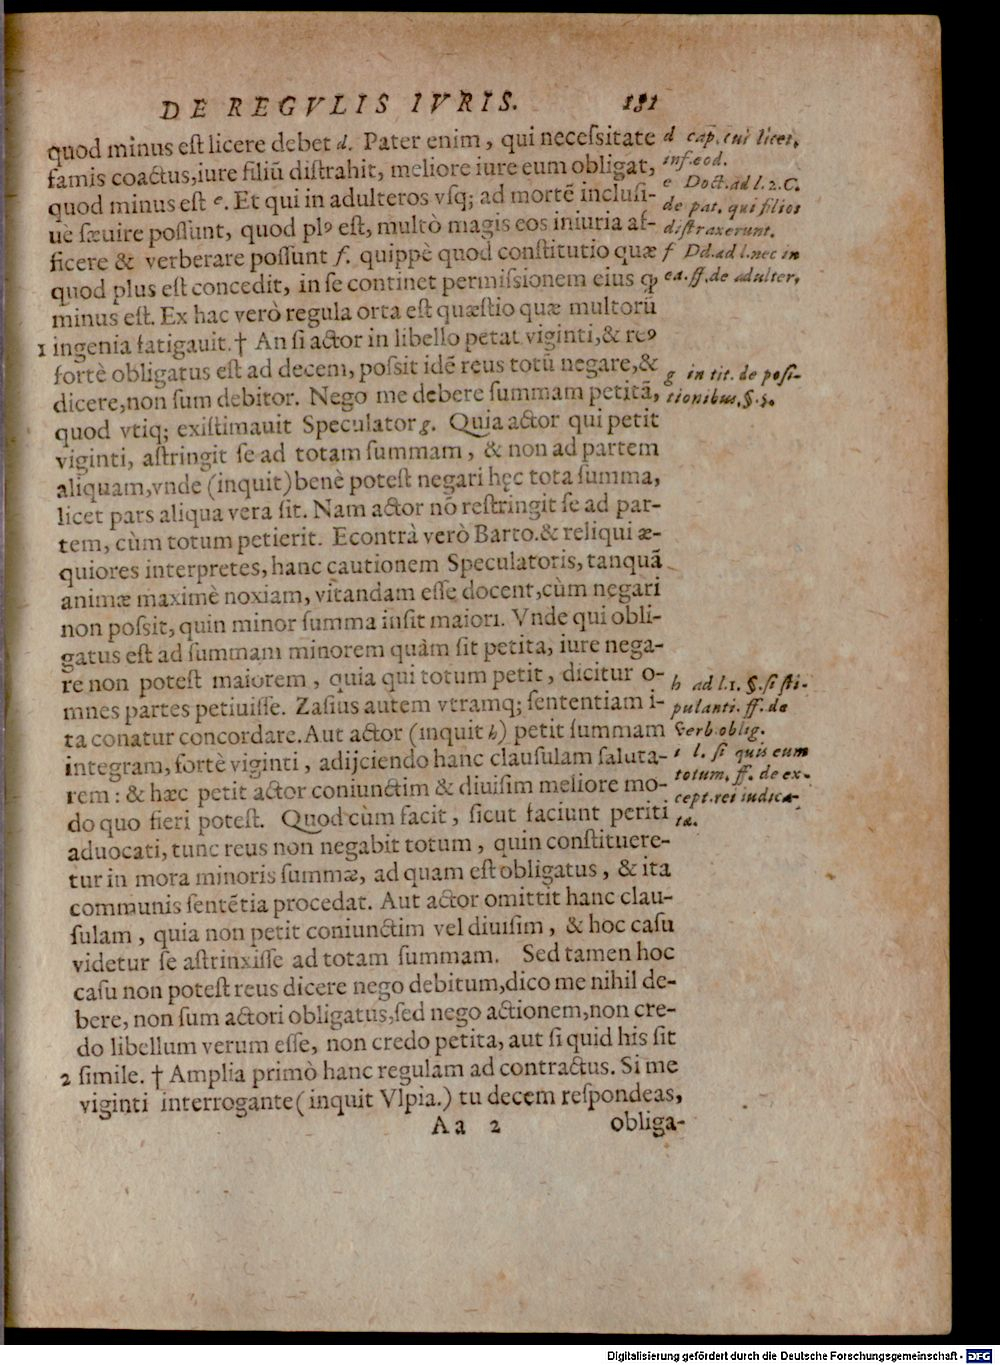 DE REGVLIS IVRIS. 181
quod minus eſt licere debet d. Pater enim, qui neceſsitate
famis coactus, iure filiū diſtrahit, meliore iure eum obligat,
quod minus eſt e. Et qui in adulteros vſq; ad mortē incluſi-
uè ſæuire poſſunt, quod plꝰ eſt, multò magis eos iniuria af-
ficere & verberare poſſunt f. quippè quod conſtitutio quæ
quod plus eſt concedit, in ſe continet permiſsionem eius ꝙ
minus eſt. Ex hac verò regula orta eſt quæſtio quæ multorū
1 ingenia fatigauit. † An ſi actor in libello petat viginti, & reꝰ
fortè obligatus eſt ad decem, poſsit idē reus totū negare, &
dicere, non ſum debitor. Nego me debere ſummam petitā,
quod vtiq; exiſtimauit Speculator g. Quia actor qui petit
viginti, aſtringit ſe ad totam ſummam, & non ad partem
aliquam, vnde (inquit) benè poteſt negari hęc tota ſumma,
licet pars aliqua vera ſit. Nam actor nō reſtringit ſe ad par-
tem, cùm totum petierit. Econtrà verò Barto. & reliqui æ-
quiores interpretes, hanc cautionem Speculatoris, tanquā
animæ maximè noxiam, vitandam eſſe docent, cùm negari
non poſsit, quin minor ſumma inſit maiori. Vnde qui obli-
gatus eſt ad ſummam minorem quàm ſit petita, iure nega-
re non poteſt maiorem, quia qui totum petit, dicitur o-
mnes partes petiuiſſe. Zaſius autem vtramq; ſententiam i-
ta conatur concordare. Aut actor (inquit h) petit ſummam
integram, fortè viginti, adijciendo hanc clauſulam ſaluta-
rem: & hæc petit actor coniunctim & diuiſim meliore mo-
do quo fieri poteſt. Quod cùm facit, ſicut faciunt periti
aduocati, tunc reus non negabit totum, quin conſtituere-
tur in mora minoris ſummæ, ad quam eſt obligatus, & ita
communis ſentētia procedat. Aut actor omittit hanc clau-
ſulam, quia non petit coniunctim vel diuiſim, & hoc caſu
videtur ſe aſtrinxiſſe ad totam ſummam. Sed tamen hoc
caſu non poteſt reus dicere nego debitum, dico me nihil de-
bere, non ſum actori obligatus, ſed nego actionem, non cre-
do libellum verum eſſe, non credo petita, aut ſi quid his ſit
2 ſimile. † Amplia primò hanc regulam ad contractus. Si me
viginti interrogante (inquit Vlpia.) tu decem reſpondeas,
Aa 2 obliga-
d cap. cui licet,
inf. eod.
e Doct. ad l. 2. C.
de pat. qui filios
diſtraxerunt.
f Dd. ad l. nec in
ea. ff. de adulter,
g in tit. de poſi-
tionibus, §. 5.
h ad l. 1. §. ſi ſti-
pulanti. ff. de
verb. oblig.
i l. ſi quis cum
totum. ff. de ex-
cept. rei iudica-
tæ.
Digitalisierung gefördert durch die Deutsche Forschungsgemeinschaft - DFG